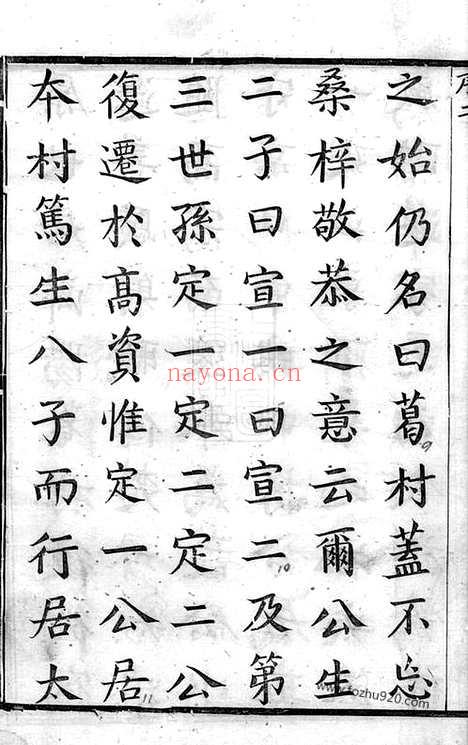 之始仍名曰葛村蓋不忘
桑梓敬恭之意云爾公生
二子曰宣一曰宣二及第
三世孫定一定二定二公
復遷於高資惟定一公居
本村篤生八子而行居太
nayona.cn
9
10
11
www.fozhu920.com